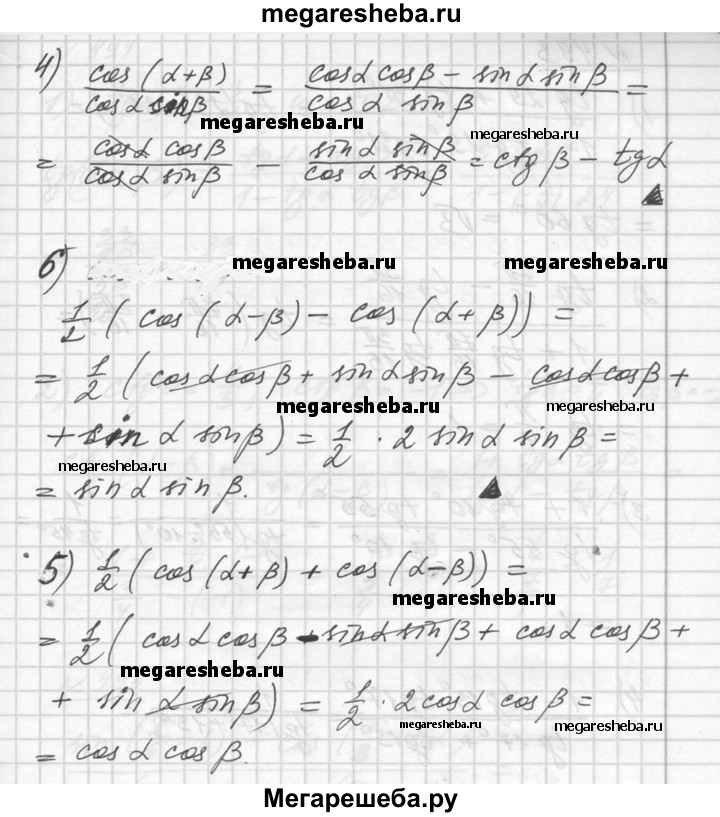 megaresheba.ru
4) cos (α+β) / cos α sin β = cos α cos β − sin α sin β / cos α sin β =
megaresheba.ru
megaresheba.ru
= cos α cos β / cos α sin β − sin α sin β / cos α sin β = ctg β − tg α
6)
megaresheba.ru megaresheba.ru
1/2 (cos (α−β) − cos (α+β)) =
= 1/2 (cos α cos β + sin α sin β − cos α cos β +
megaresheba.ru megaresheba.ru
+ sin α sin β) = 1/2 · 2 sin α sin β =
megaresheba.ru
= sin α sin β.
5) 1/2 (cos (α+β) + cos (α−β)) =
megaresheba.ru
= 1/2 (cos α cos β − sin α sin β + cos α cos β +
megaresheba.ru
+ sin α sin β) = 1/2 · 2 cos α cos β =
megaresheba.ru megaresheba.ru
= cos α cos β.
Мегарешеба.ру